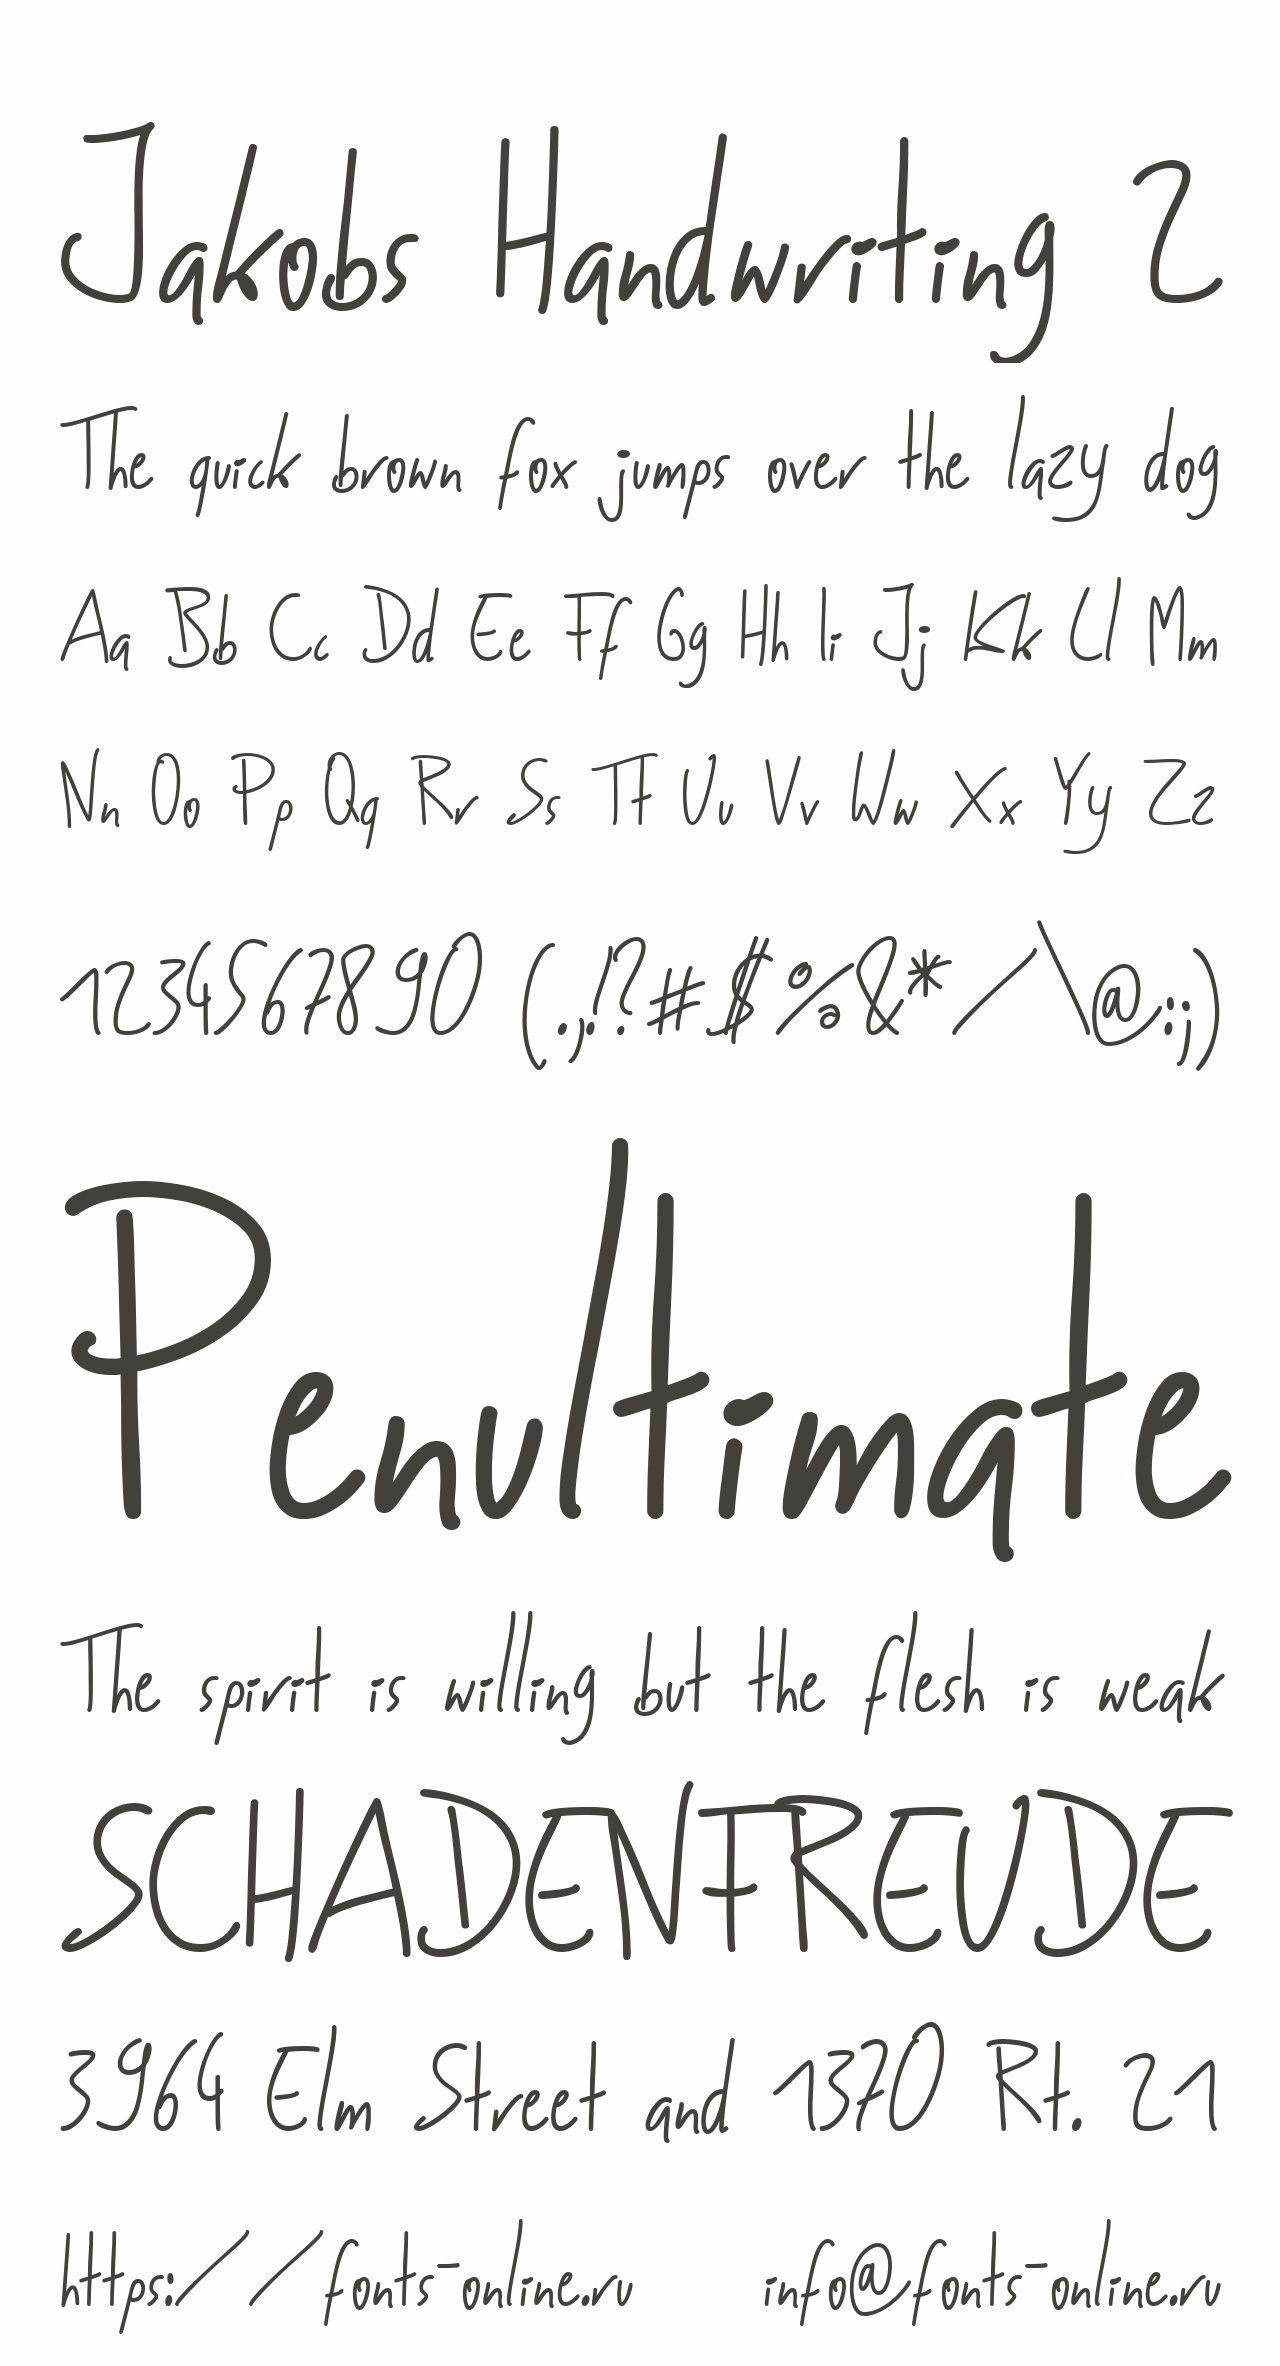 Jakobs Handwriting 2
The quick brown fox jumps over the lazy dog
Aa Bb Cc Dd Ee Ff Gg Hh Ii Jj Kk Ll Mm
Nn Oo Pp Qq Rr Ss Tt Uu Vv Ww Xx Yy Zz
1234567890 (.,!?#$%&*/\@:;)
Penultimate
The spirit is willing but the flesh is weak
SCHADENFREUDE
3964 Elm Street and 1370 Rt. 21
https://fonts-online.ru info@fonts-online.ru